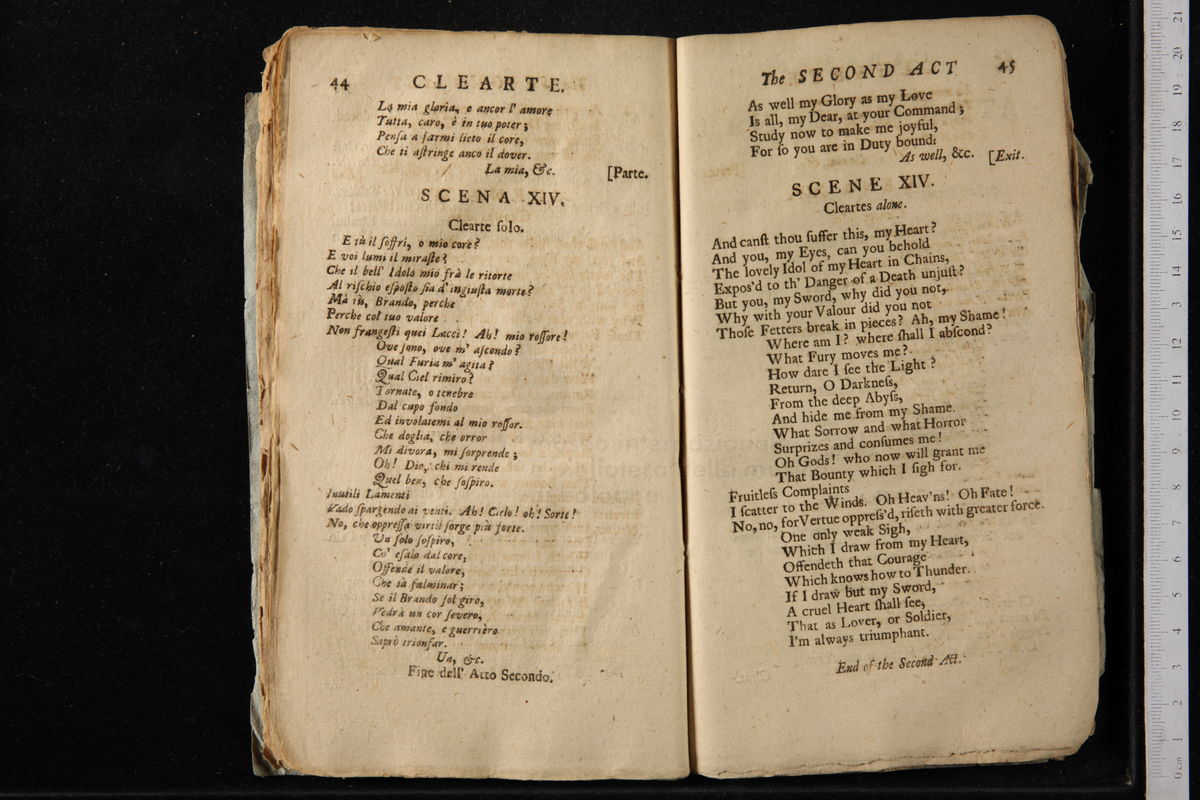 44 CLEARTE.
La mia gloria, e ancor l' amore
Tutta, caro, è in tuo poter;
Penſa a farmi lieto il core,
Che ti aſtringe anco il dover.
La mia, &c. [Parte.
SCENA XIV.
Clearte ſolo.
E tù il ſoffri, o mio core?
E voi lumi il miraſte?
Che il bell' Idolo mio frà le ritorte
Al riſchio eſpoſto ſia d' ingiuſta morte?
Mà tù, Brando, perche
Perche col tuo valore
Non frangeſti quei Lacci! Ah! mio roſſore!
Ove ſono, ove m' aſcondo?
Qual Furia m' agita?
Qual Ciel rimiro?
Tornate, o tenebre
Dal cupo fondo
Ed involatemi al mio roſſor.
Che doglia, che orror
Mi divora, mi ſorprende;
Oh! Dio, chi mi rende
Quel ben, che ſoſpiro.
Inutili Lamenti
Vado ſpargendo ai venti. Ah! Cielo! oh! Sorte!
No, che oppreſſa virtù ſorge più forte.
Un ſolo ſoſpiro,
Ch' eſalo dal core,
Offende il valore,
Che sà fulminar;
Se il Brando ſol giro,
Vedrà un cor ſevero,
Che amante, e guerriero
Saprò trionfar.
Un, &c.
Fine dell' Atto Secondo.
The SECOND ACT 45
As well my Glory as my Love
Is all, my Dear, at your Command;
Study now to make me joyful,
For ſo you are in Duty bound:
As well, &c. [Exit.
SCENE XIV.
Cleartes alone.
And canſt thou ſuffer this, my Heart?
And you, my Eyes, can you behold
The lovely Idol of my Heart in Chains,
Expos'd to th' Danger of a Death unjuſt?
But you, my Sword, why did you not,
Why with your Valour did you not
Thoſe Fetters break in pieces? Ah, my Shame!
Where am I? where ſhall I abſcond?
What Fury moves me?
How dare I ſee the Light?
Return, O Darkneſs,
From the deep Abyſs,
And hide me from my Shame.
What Sorrow and what Horror
Surprizes and conſumes me!
Oh Gods! who now will grant me
That Bounty which I ſigh for.
Fruitleſs Complaints
I ſcatter to the Winds. Oh Heav'ns! Oh Fate!
No, no, for Vertue oppreſs'd, riſeth with greater force.
One only weak Sigh,
Which I draw from my Heart,
Offendeth that Courage
Which knows how to Thunder.
If I draw but my Sword,
A cruel Heart ſhall ſee,
That as Lover, or Soldier,
I'm always triumphant.
End of the Second Act.